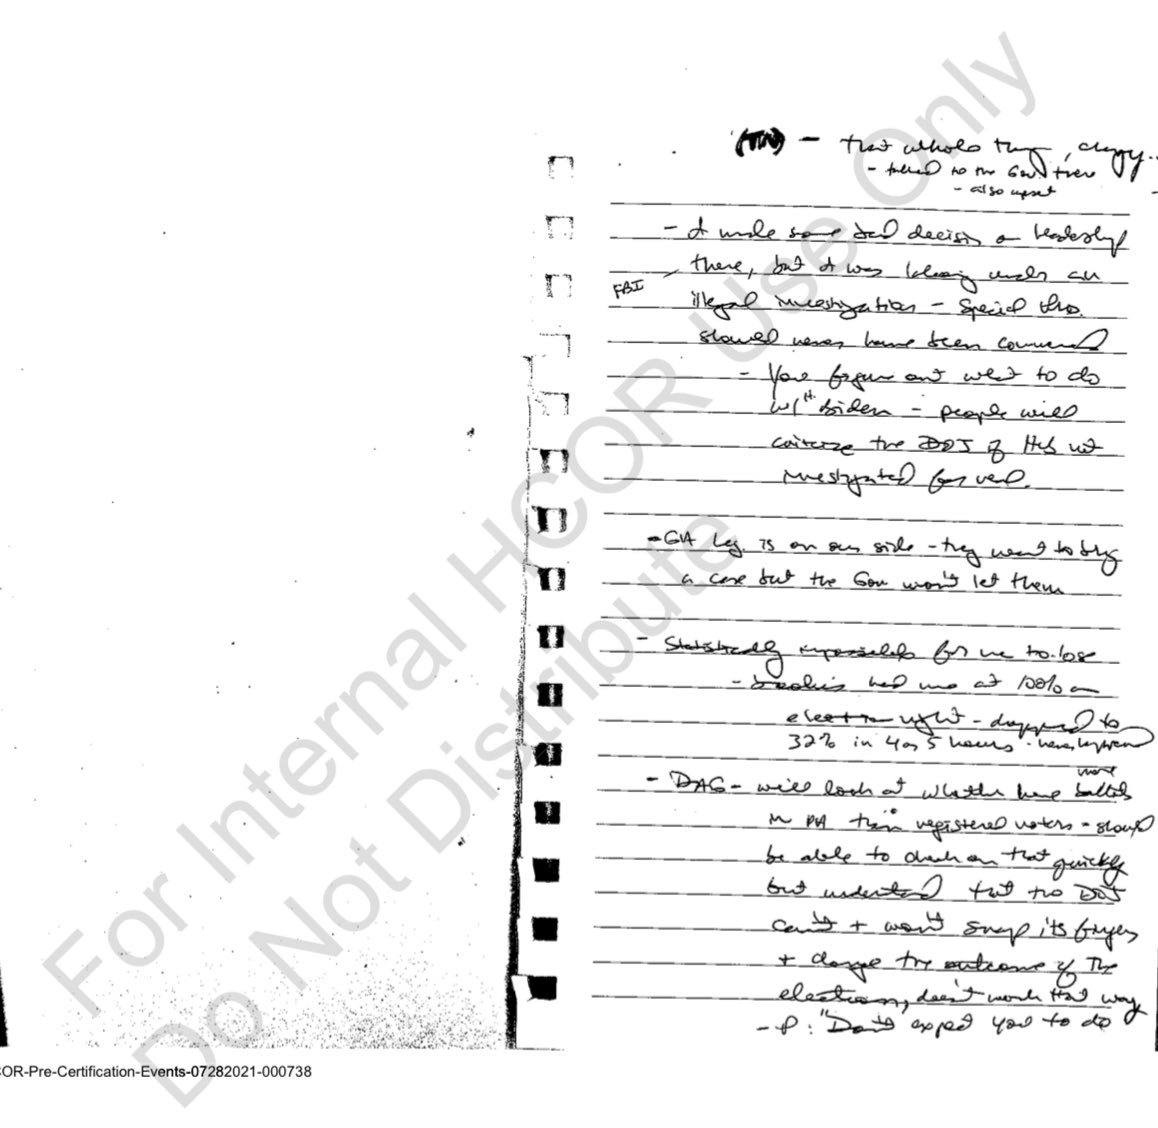 (TN) – that whole thing, crazy..
- talked to the Gov there
- also upset
- I made some bad decisis on leadership
there, but I was laboring under an
FBI
illegal investigation – Special
should never have been commenced
- You figure out what to do
w/ H. Biden – people will
criticize the DOJ if He's not
investigated for real.
- GA Leg. is on our side – they want to bring
a case but the Gov won't let them
- Statistically impossible for me to lose
- bookies had me at 100% on
election night – dropped to
32% in 4 or 5 hours -
more
- DAG – will look at whether have ballots
in PA than registered voters – should
be able to check on that quickly
but understand that the DOJ
can't + won't snap its fingers
+ change the outcome of the
election, doesn't work that way
- P: "Don't expect you to do
For Internal HCOR Use Only
Do Not Distribute
COR-Pre-Certification-Events-07282021-000738